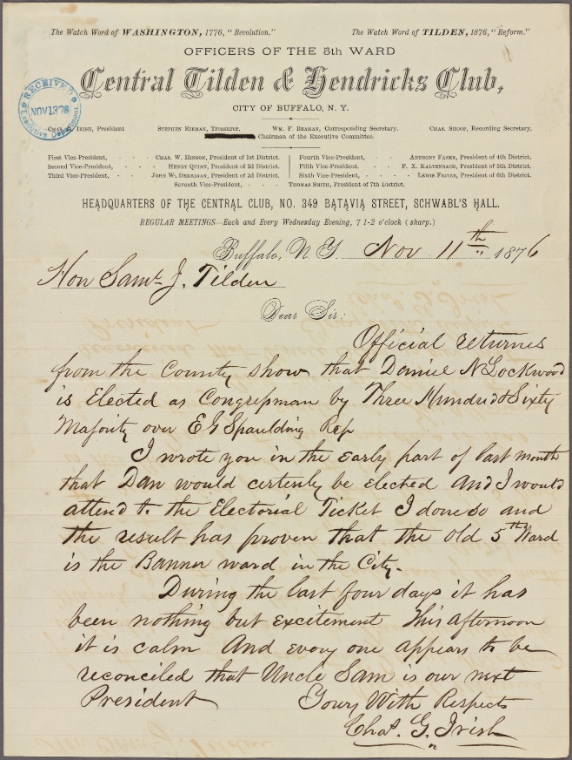 The Watch Word of WASHINGTON, 1776, "Revolution." The Watch Word of TILDEN, 1876, "Reform."
OFFICERS OF THE 5th WARD
Central Tilden & Hendricks Club,
CITY OF BUFFALO, N. Y.
RECEIVED
NOV 13 76
IRISH, President STEPHEN KIERAN, TREASURER, WM. F. BRAGAN, Corresponding Secretary. CHAS. SHOOP, Recording Secretary.
Chairman of the Executive Committee.
First Vice-President, CHAS. W. HINSON, President of 1st District. Fourth Vice-President, ANTHONY President of 4th District.
Second Vice-President, HENRY QUINT, President of 2d District. Fifth Vice-President, F. X. KALTENBACH, President of 5th District.
Third Vice-President, JOHN W. President of 3d District. Sixth Vice-President, LOUIS President of 6th District.
Seventh Vice-President, THOMAS SMITH, President of 7th District.
HEADQUARTERS OF THE CENTRAL CLUB, NO. 349 BATAVIA STREET, SCHWABL'S HALL.
REGULAR MEETINGS—Each and Every Wednesday Evening, 7 1-2 o'clock (sharp.)
Buffalo, N Y Nov 11th 1876
Hon Saml J. Tilden
Dear Sir:
Official returnes
from the County show that Daniel N Lockwood
is Elected as Congressman by Three Hundred & Sixty
Majority over E G Spaulding Rep
I wrote you in the early part of last month
that Dan would certenly be elected and I would
attend to the Electorial Ticket I done so and
the result has proven that the old 5th Ward
is the Banner ward in the City.
During the last four days it has
been nothing but excitement This afternoon
it is calm And every one appears to be
reconciled that Uncle Sam is our next
President Yours With Respects
Chas. G. Irish